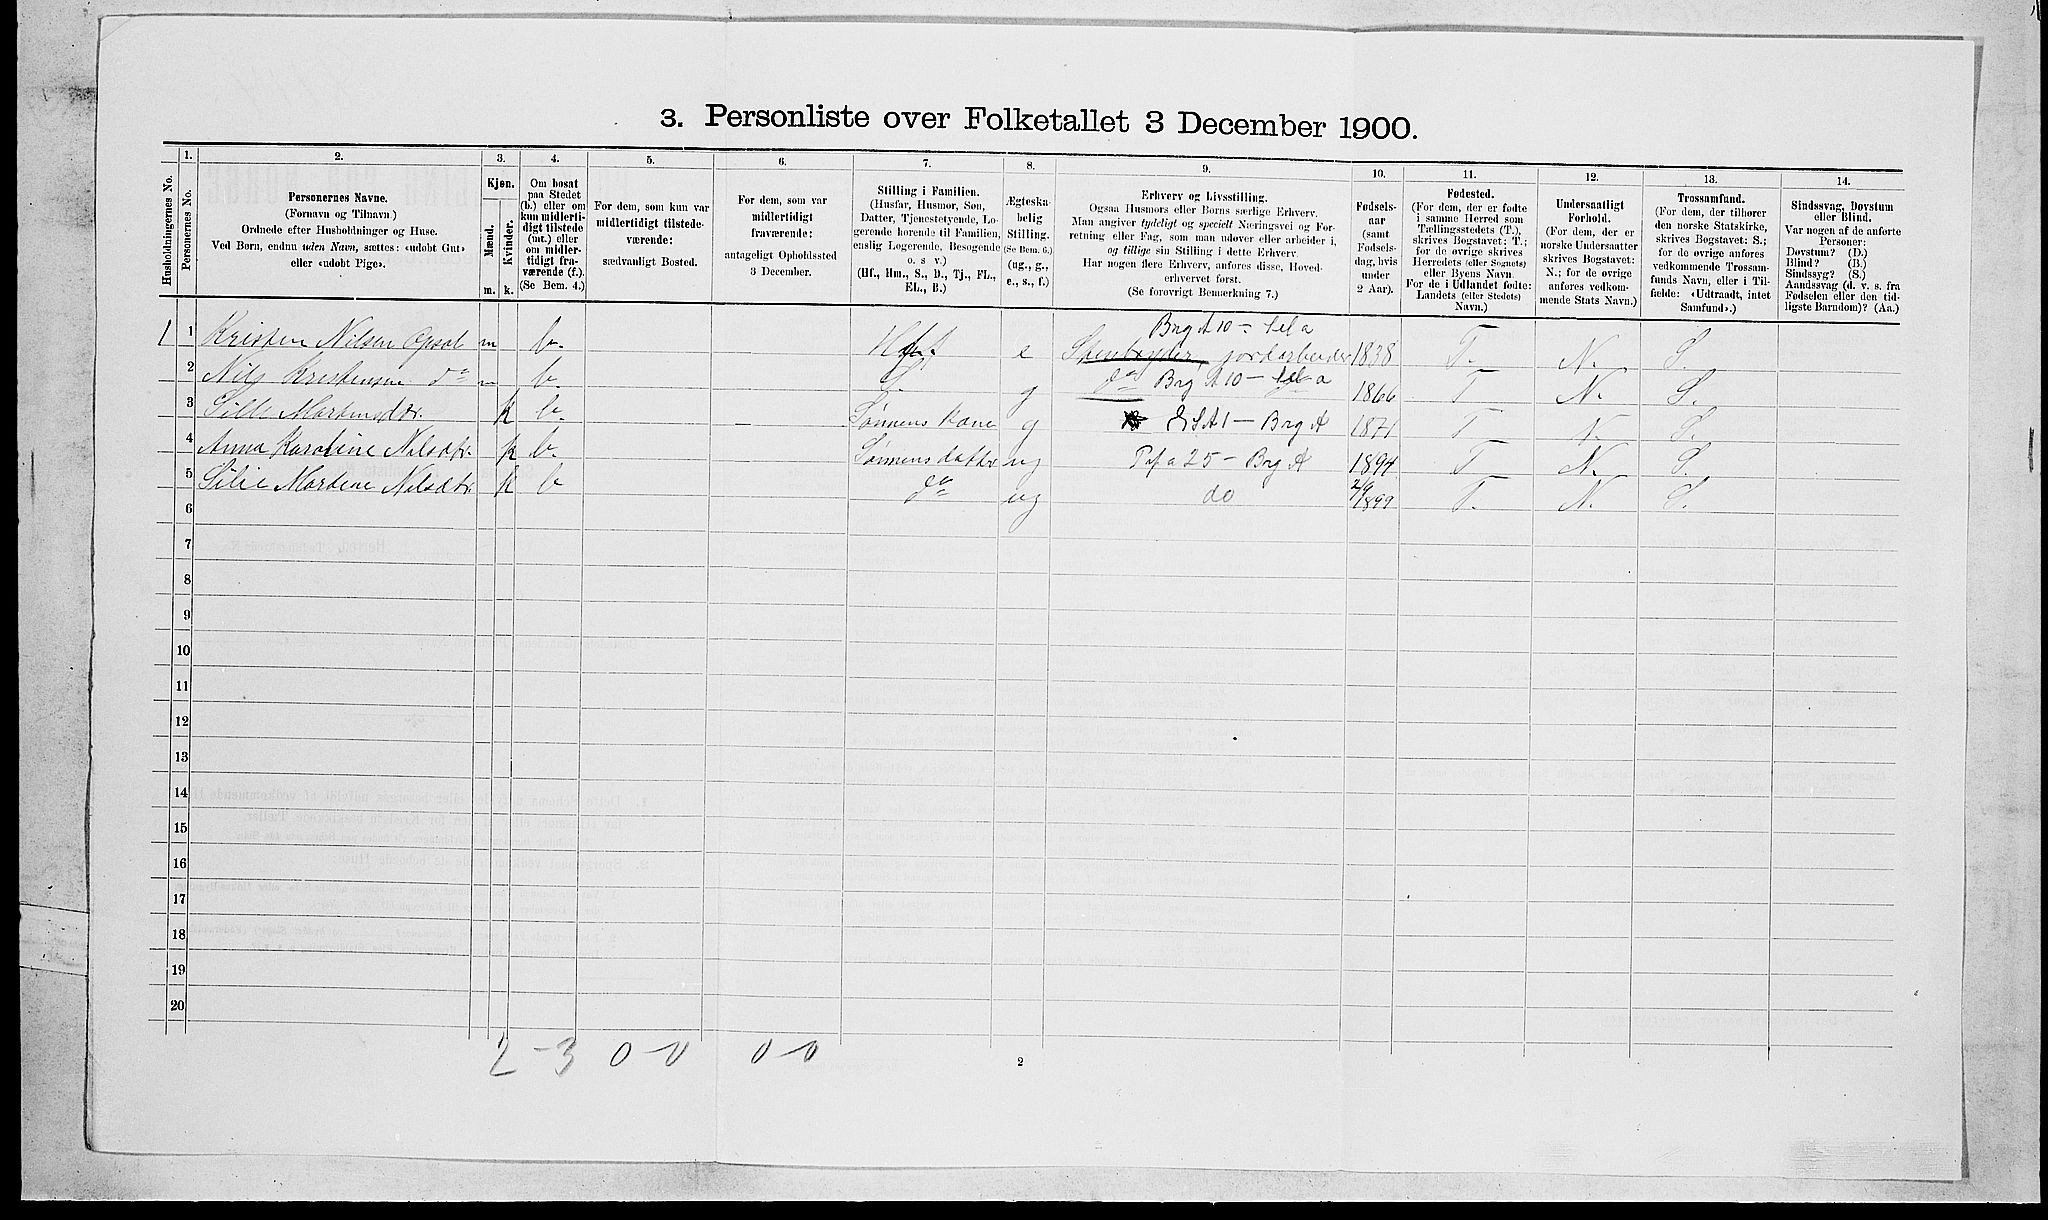 3. Personliste over Folketallet 3 December 1900.
Husholdningernes No.
1.
Personernes No.
2.
Personernes Navne.
(Fornavn og Tilnavn.)
Ordnede efter Husholdninger og Huse.
Ved Børn, endnu uden Navn, sættes: «udøbt Gut»
eller «udøbt Pige».
3.
Kjøn.
Mænd.
Kvinder.
m. k.
4.
Om bosat
paa Stedet
(b.) eller om
kun midlerti-
digt tilstede
(mt.) eller
om midler-
tidigt fra-
værende (f.).
(Se Bem. 4.)
5.
For dem, som kun var
midlertidigt tilstede-
værende:
sædvanligt Bosted.
6.
For dem, som var
midlertidigt
fraværende:
antageligt Opholdssted
3 December.
7.
Stilling i Familien.
(Husfar, Husmor, Søn,
Datter, Tjenestetyende, Lo-
gerende hørende til Familien,
enslig Logerende, Besøgende
o. s. v.)
(Hf., Hm., S., D., Tj., FL.,
EL., B.)
8.
Ægteska-
belig
Stilling.
(Se Bem. 6.)
(ug., g.,
e., s., f.)
9.
Erhverv og Livsstilling.
Ogsaa Husmors eller Børns særlige Erhverv.
Man angiver tydeligt og specielt Næringsvei og For-
retning eller Fag, som man udøver eller arbeider i,
og tillige sin Stilling i dette Erhverv.
Har nogen flere Erhverv, anføres disse, Hoved-
erhvervet først.
(Se forøvrigt Bemærkning 7.)
10.
Fødsels-
aar
(samt
Fødsels-
dag, hvis
under
2 Aar).
11.
Fødested.
(For dem, der er fødte
i samme Herred som
Tællingsstedets (T.),
skrives Bogstavet: T.;
for de øvrige skrives
Herredets (eller Sognets)
eller Byens Navn.
For de i Udlandet fødte:
Landets (eller Stedets)
Navn.)
12.
Undersaatligt
Forhold.
(For dem, der er
norske Undersaatter
skrives Bogstavet:
N.; for de øvrige
anføres vedkom-
mende Stats Navn.)
13.
Trossamfund.
(For dem, der tilhører
den norske Statskirke,
skrives Bogstavet: S.;
for de øvrige anføres
vedkommende Trossam-
funds Navn, eller i Til-
fælde: «Udtraadt, intet
Samfund».)
14.
Sindssvag, Døvstum
eller Blind.
Var nogen af de anførte
Personer:
Døvstum? (D.)
Blind? (B.)
Sindssyg? (S.)
Aandssvag (d. v. s. fra
Fødselen eller den tid-
ligste Barndom)? (Aa.)
Brg A 10 – tel a
1 1 Kristen Nilsen Opsal m b. Hf. e jordarbeider 1838 T. N. S.
2 Nils Kristensen do m b. S. g do Brg A 10 – tel a 1866 T N. S.
3 Silde Martinsdtr. k b. Sønnens kone g E S A 1 – Brg A 1871 T N. S.
4 Anna Karoline Nilsdtr. k b. Sønnens datter ug Pf a 25 – Brg A 1894 T N. S.
5 Silie Martine Nilsdtr. k b do ug do 2/9 1899 T. N. S.
6
7
8
9
10
11
12
13
14
15
16
17
18
19
20
2 – 3 0 – 0 0 – 0
2